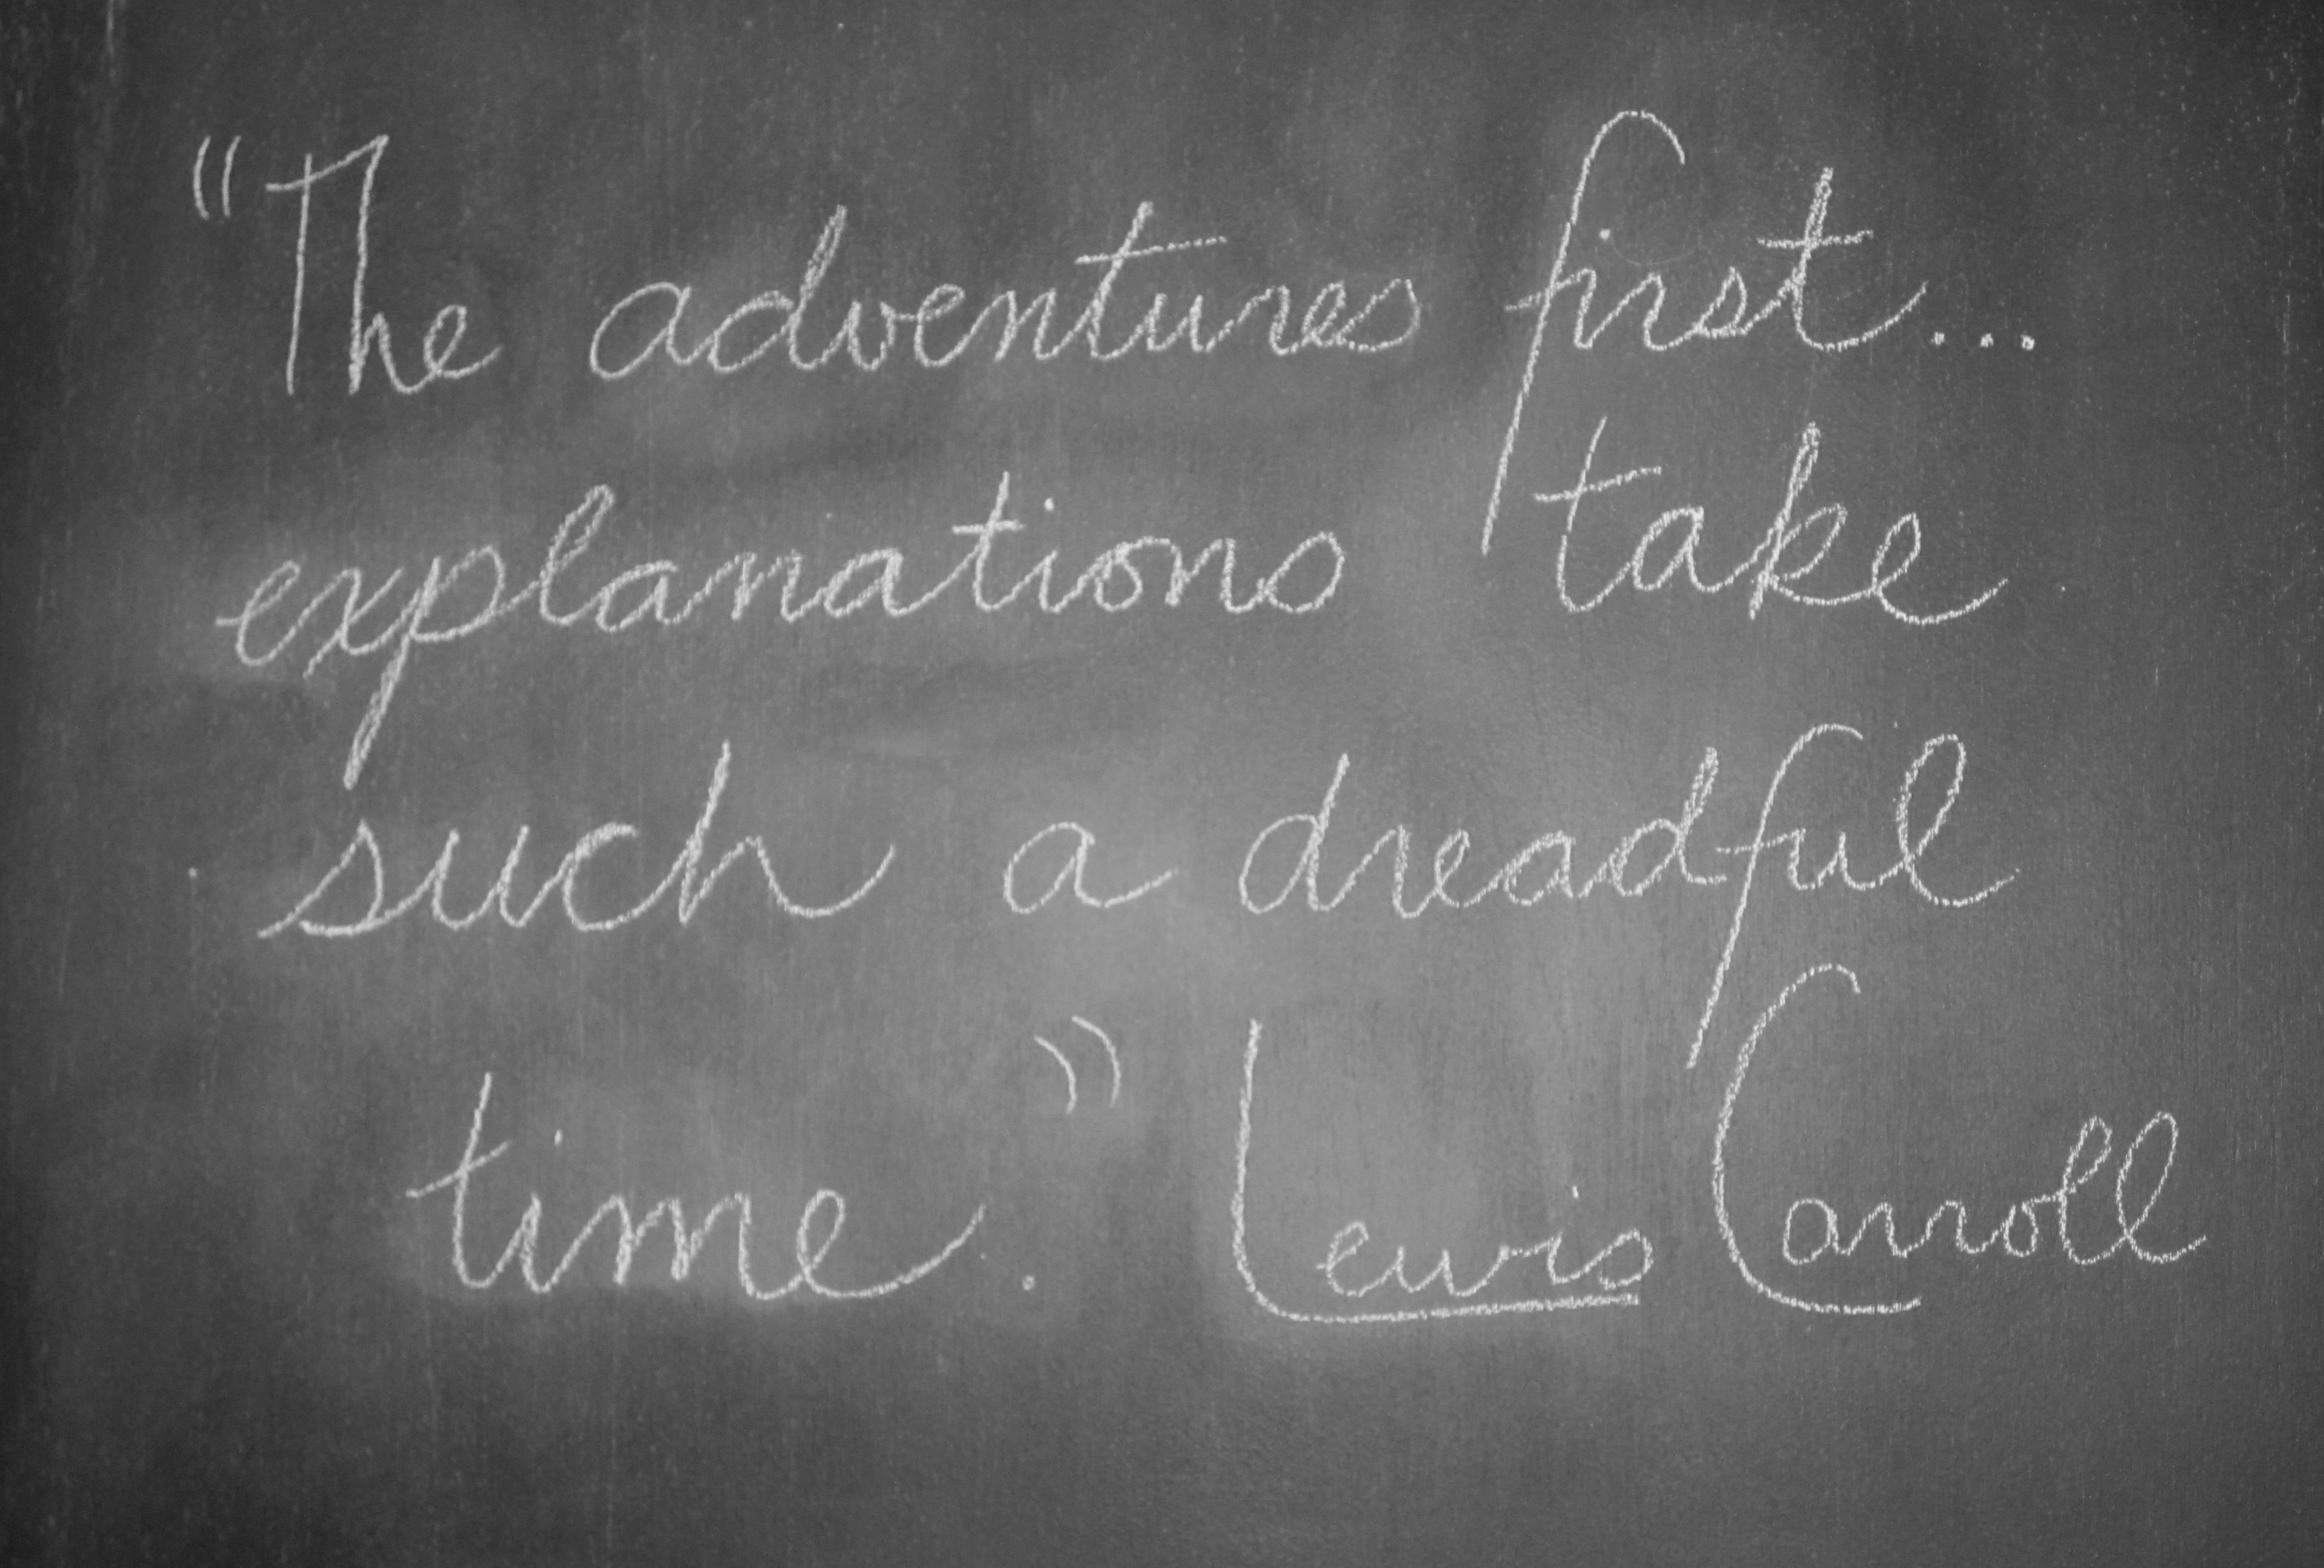 "The adventures first...
explanations take
such a dreadful
time." Lewis Carroll